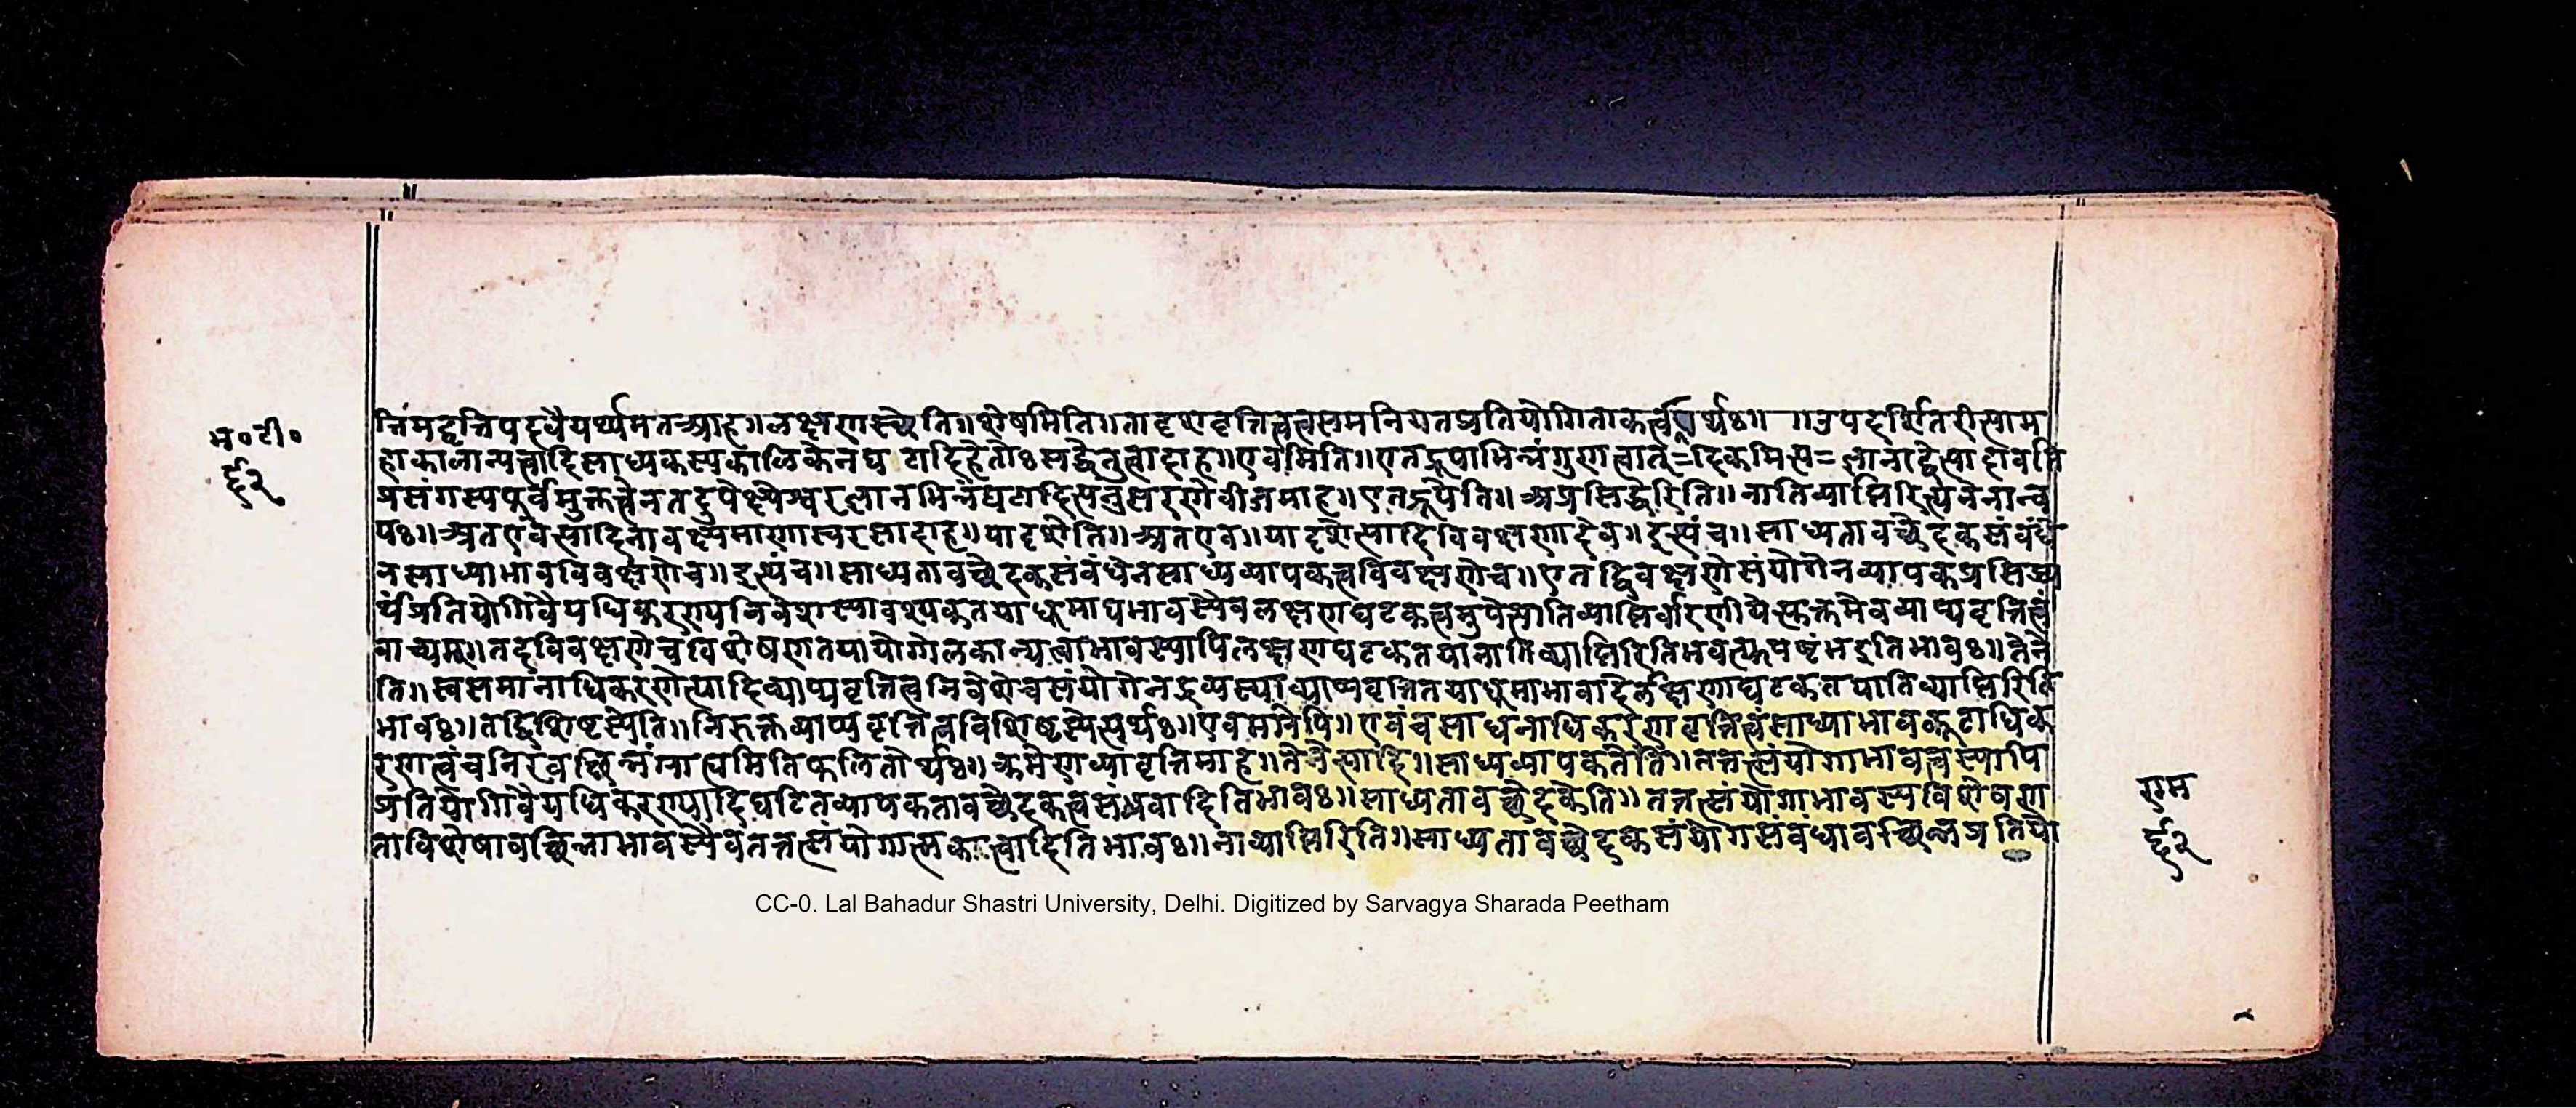 म॰टी॰
६२
त्तिमद्वृत्तिपदवैयर्थ्यमतआह॥लक्षणास्यैति॥शेषमिति॥तादृशवृत्तित्वसमनियतप्रतियोगिताकत्व र्थः॥ ॥उपदर्शितरीत्याम
हाकालान्यत्वादिसाध्यकस्यकालिकेनघ टादिहेतोःसद्धेतुत्वादाह॥एवमिति॥एतद्रूपाभिन्नंगुणत्वात्=
प्रसंगस्यपूर्वमुक्तत्वेनतदुपेक्ष्यैश्वरज्ञानभिन्नंघटादित्यनुसरणेवीजमाह॥एतद्रूपेति॥अप्रसिद्धेरिति॥नातिव्याप्तिरित्यनेनान्व
यः॥अतएवेत्यादिनावक्ष्यमाणास्वरसादाह॥यादृशेति॥अतएव॥यादृशेत्यादिविवक्षणादेव॥इत्थंच॥साध्यतावच्छेदकसंबंधे
नसाध्याभावविवक्षणेच॥इत्थंच॥साध्यतावच्छेदकसंबंधेनसाध्यव्यापकत्वविवक्षणेच॥एतद्विवक्षणेसंयोगेनव्यापकप्रसिद्ध्य
र्थंप्रतियोगिवैयधिकरण्यनिवेशस्यावश्यकतयाधूमाद्यभावस्यैवलक्षणघटकत्वमुपेत्यातिव्याप्तिर्वारणीयेत्युक्तमेवव्याप्यवृत्तित्वं
वाच्यम्॥तदविवक्षणेचविशेषणतयायोगोलकान्यत्वाभावस्यापिलक्षणघटकतयानातिव्याप्तिरितिभवत्युपष्टंभइतिभावः॥तेने
ति॥स्वसमानाधिकरणेत्यादिव्याप्यवृत्तित्वनिवेशेचसंयोगेनद्रव्यस्याव्याप्यवृत्तितयाधूमाभावादेर्लक्षणाघटकतयातिव्याप्तिरिति
भावः॥तद्विशिष्टस्येति॥निरुक्तव्याप्यवृत्तित्वविशिष्टस्येत्यर्थः॥एवमग्रेपि॥एवंचसाधनाधिकरणावृत्तित्वंसाध्याभावकूटाधिक
रणत्वंचनिरवच्छिन्नंग्राह्यमितिफलितोर्थः॥क्रमेणव्यावृत्तिमाह॥तेनेत्यादि॥साध्यव्यापकतेति॥तत्तत्संयोगाभावत्वस्यापि
प्रतियोगिवैयधिकरण्यादिघटितव्यापकतावच्छेदकत्वसंभवादितिभावः॥साध्यतावच्छेदकेति॥तत्तत्संयोगाभावस्यविशेषण
ताविशेषावच्छिन्नाभावस्यैवतत्तत्संयोगात्मकत्वादितिभावः॥नाव्याप्तिरिति॥साध्यतावच्छेदकसंयोगसंबंधावच्छिन्नप्रतियो
राम
६२
CC-0. Lal Bahadur Shastri University, Delhi. Digitized by Sarvagya Sharada Peetham